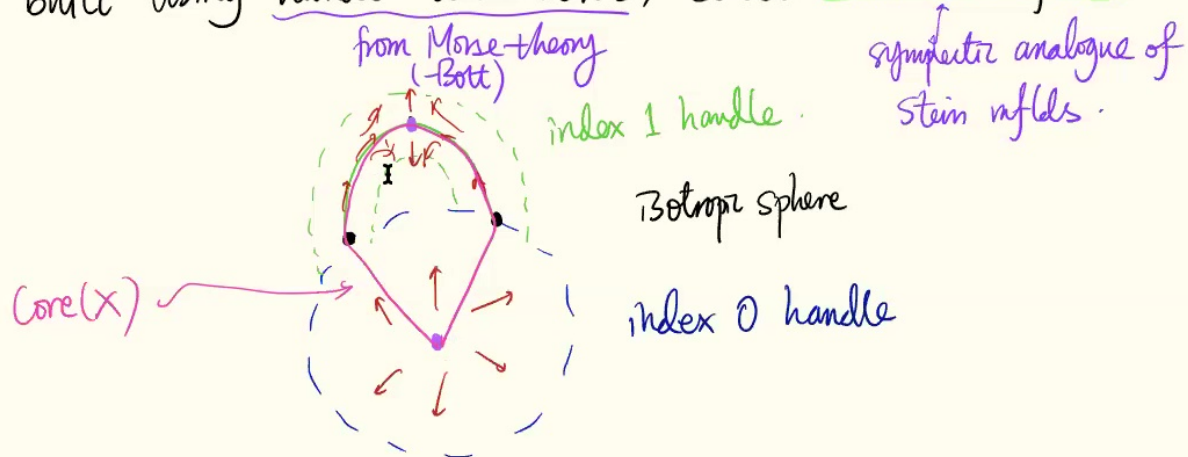 built using
from Morse-theory
(-Bott)
symplectic analogue of
Stein mflds.
index 1 handle.
Isotropic sphere
Core(X)
index 0 handle